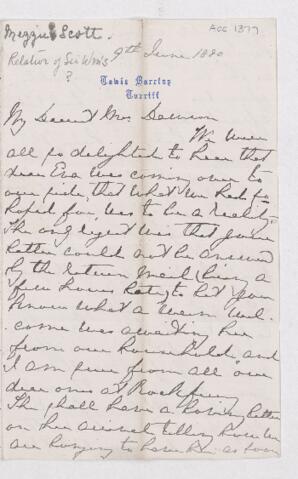 Meggie Scott.
Acc 1377
Relation of Sir Wm's
?
9th June 1880
Towie Barclay
Turriff
My Dearest Mrs Dawson
We were
all so delighted to hear that
dear Eva was coming over to
our side, that what we had so
hoped for, was to be a reality.
The only regret was that your
letter could not be answered
by the return mail (being a
few hours late) to let you
know what a warm wel-
come was awaiting her
from our household, and
I am sure from all our
dear ones at
She shall have a loving letter
on her arrival telling how we
are longing to have her as soon